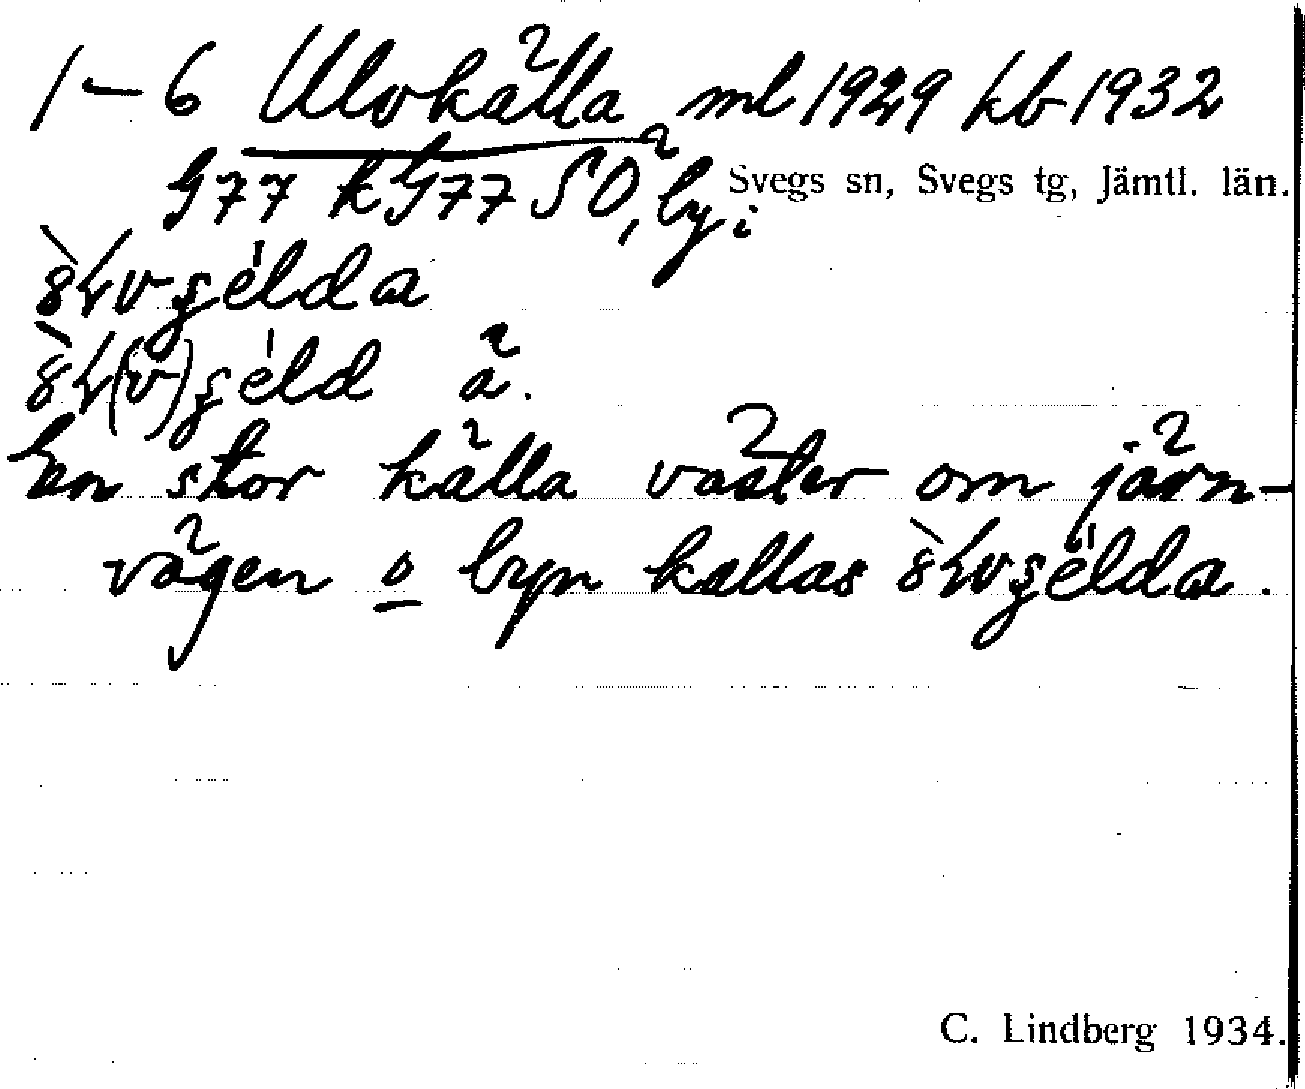 1–6 Ulvkälla ml 1929 kb 1932
G77 kG77 SO, by i Svegs sn, Svegs tg, Jämtl. län.
ä.
En stor källa väster om järn-
vägen o byn kallas
C. Lindberg 1934.